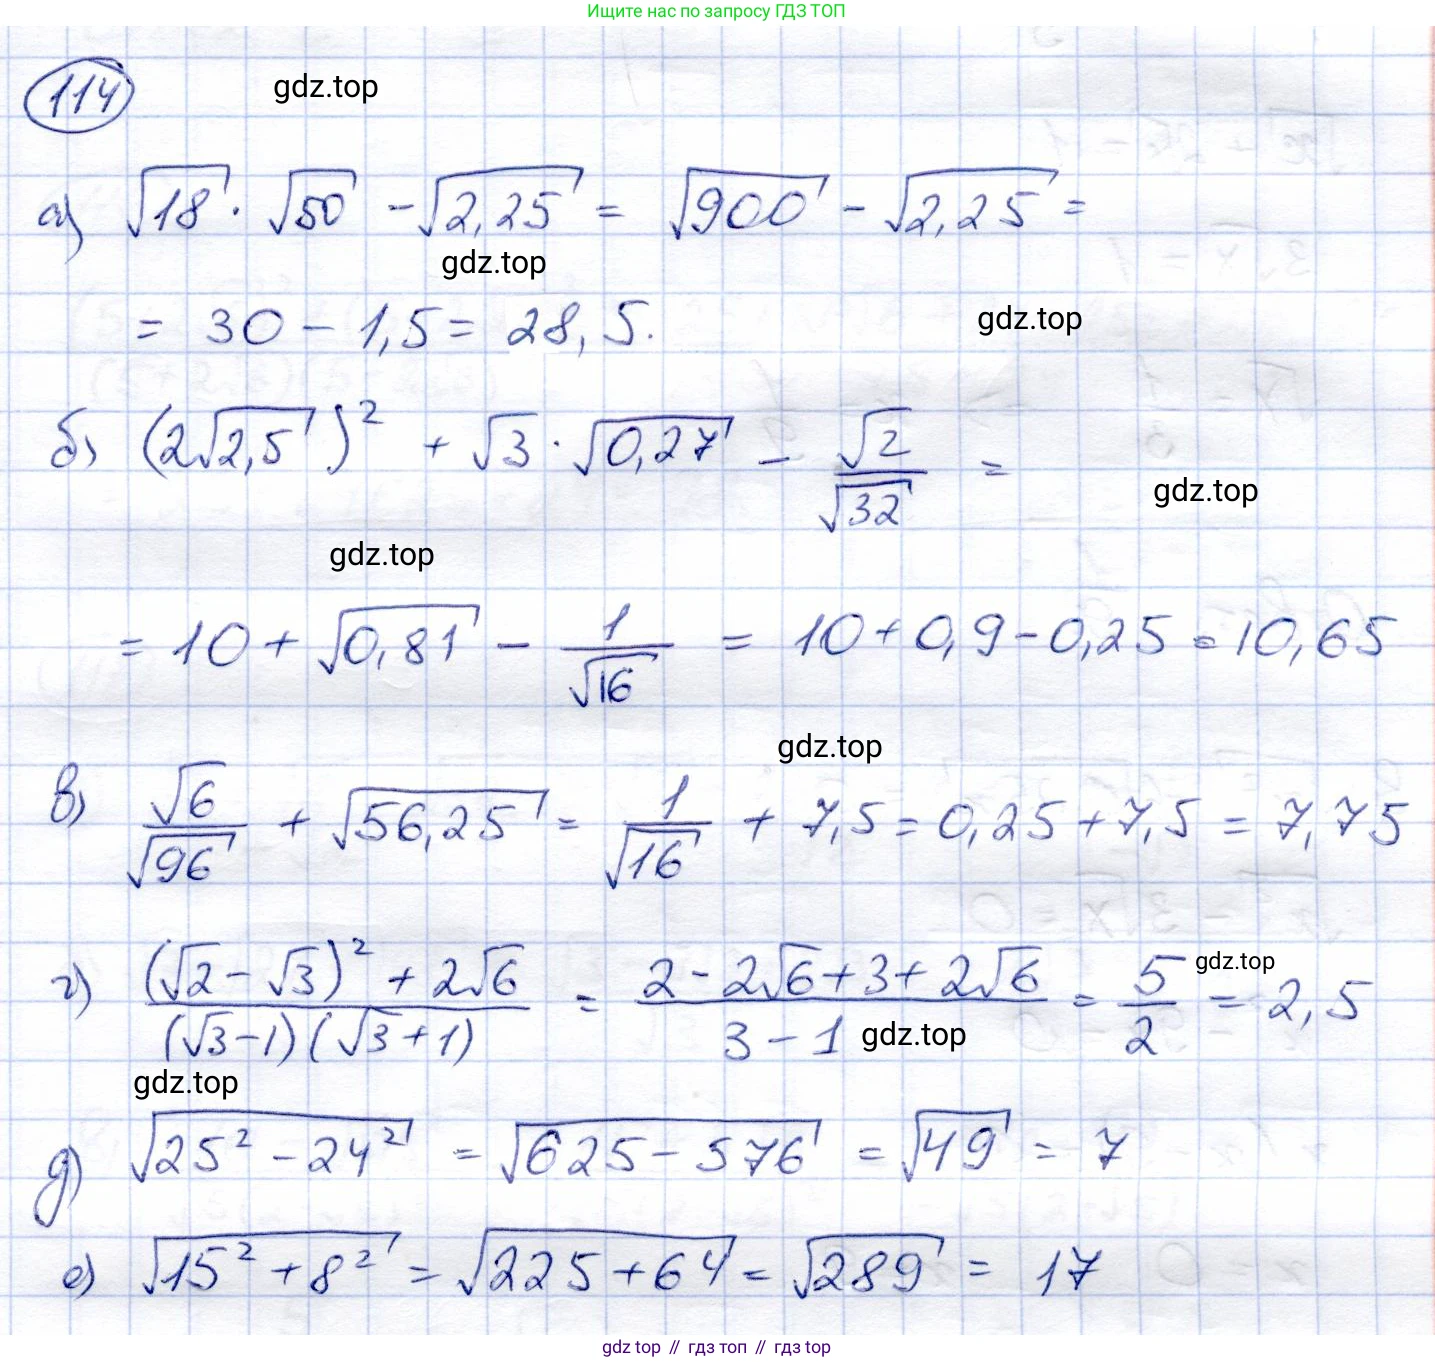 Ищите нас по запросу ГДЗ ТОП
114 gdz.top
а) √18 · √50 - √2,25 = √900 - √2,25 =
gdz.top
= 30 - 1,5 = 28,5. gdz.top
б) (2√2,5)² + √3 · √0,27 - √2/√32 =
gdz.top
gdz.top
= 10 + √0,81 - 1/√16 = 10 + 0,9 - 0,25 = 10,65
gdz.top
в) √6/√96 + √56,25 = 1/√16 + 7,5 = 0,25 + 7,5 = 7,75
г) ((√2 - √3)² + 2√6)/((√3 - 1)(√3 + 1)) = (2 - 2√6 + 3 + 2√6)/(3 - 1) = 5/2 = 2,5
gdz.top
gdz.top
gdz.top
д) √(25² - 24²) = √(625 - 576) = √49 = 7
е) √(15² + 8²) = √(225 + 64) = √289 = 17
gdz top // гдз топ // гдз top